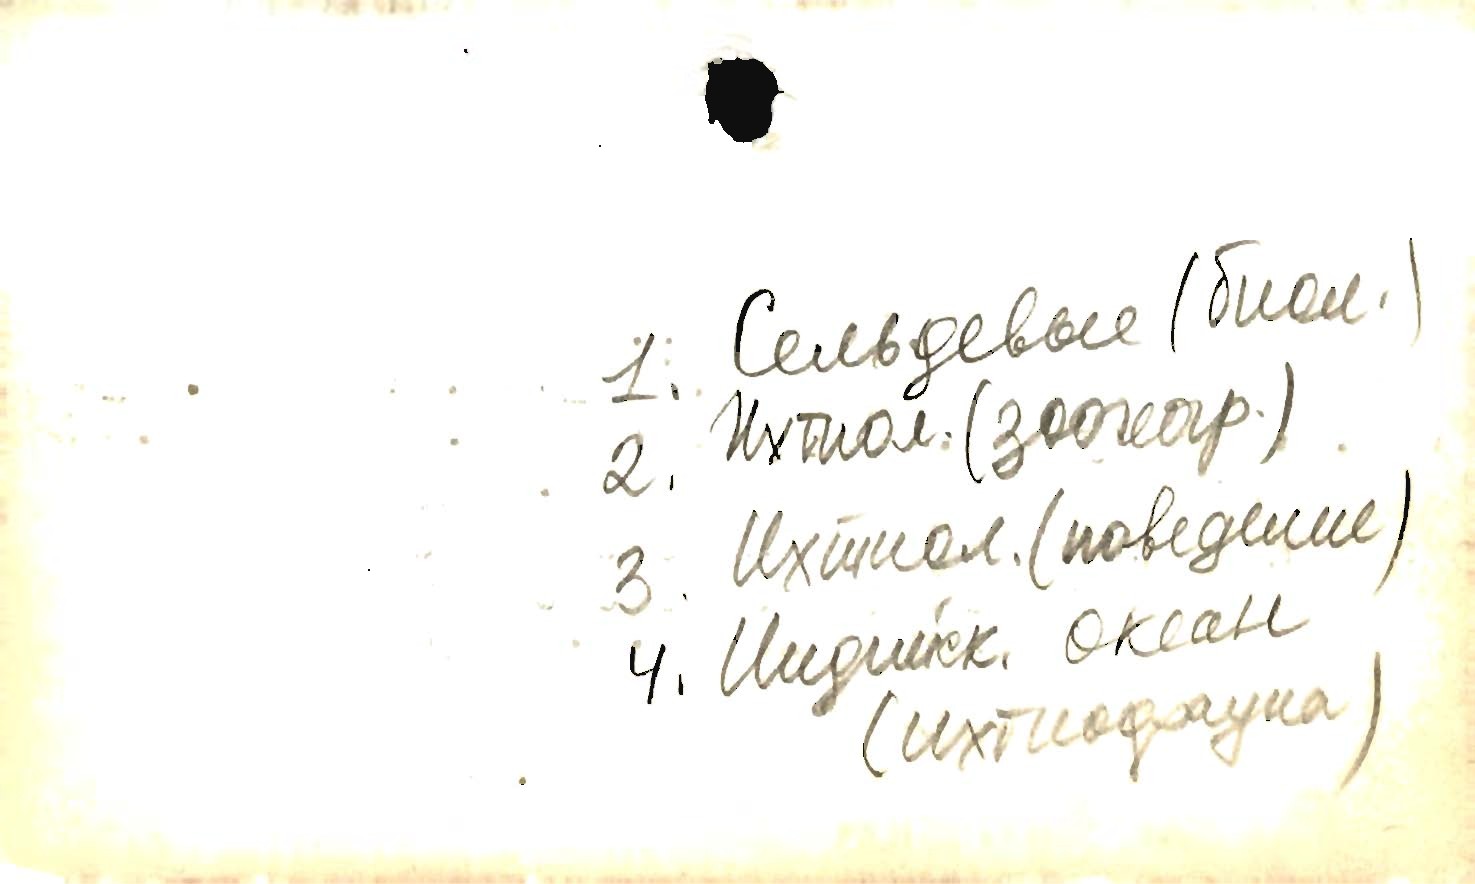 1. Сельдевые (биол.)
2. Ихтиол. (зоогеогр.)
3. Ихтиол. (поведение)
4. Индийск. океан
(ихтиофауна)